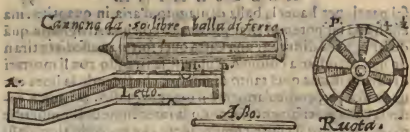 Cannone da 50 libre balla di ferro
P. 4. ½
A.
Letto.
Asso.
Ruota.